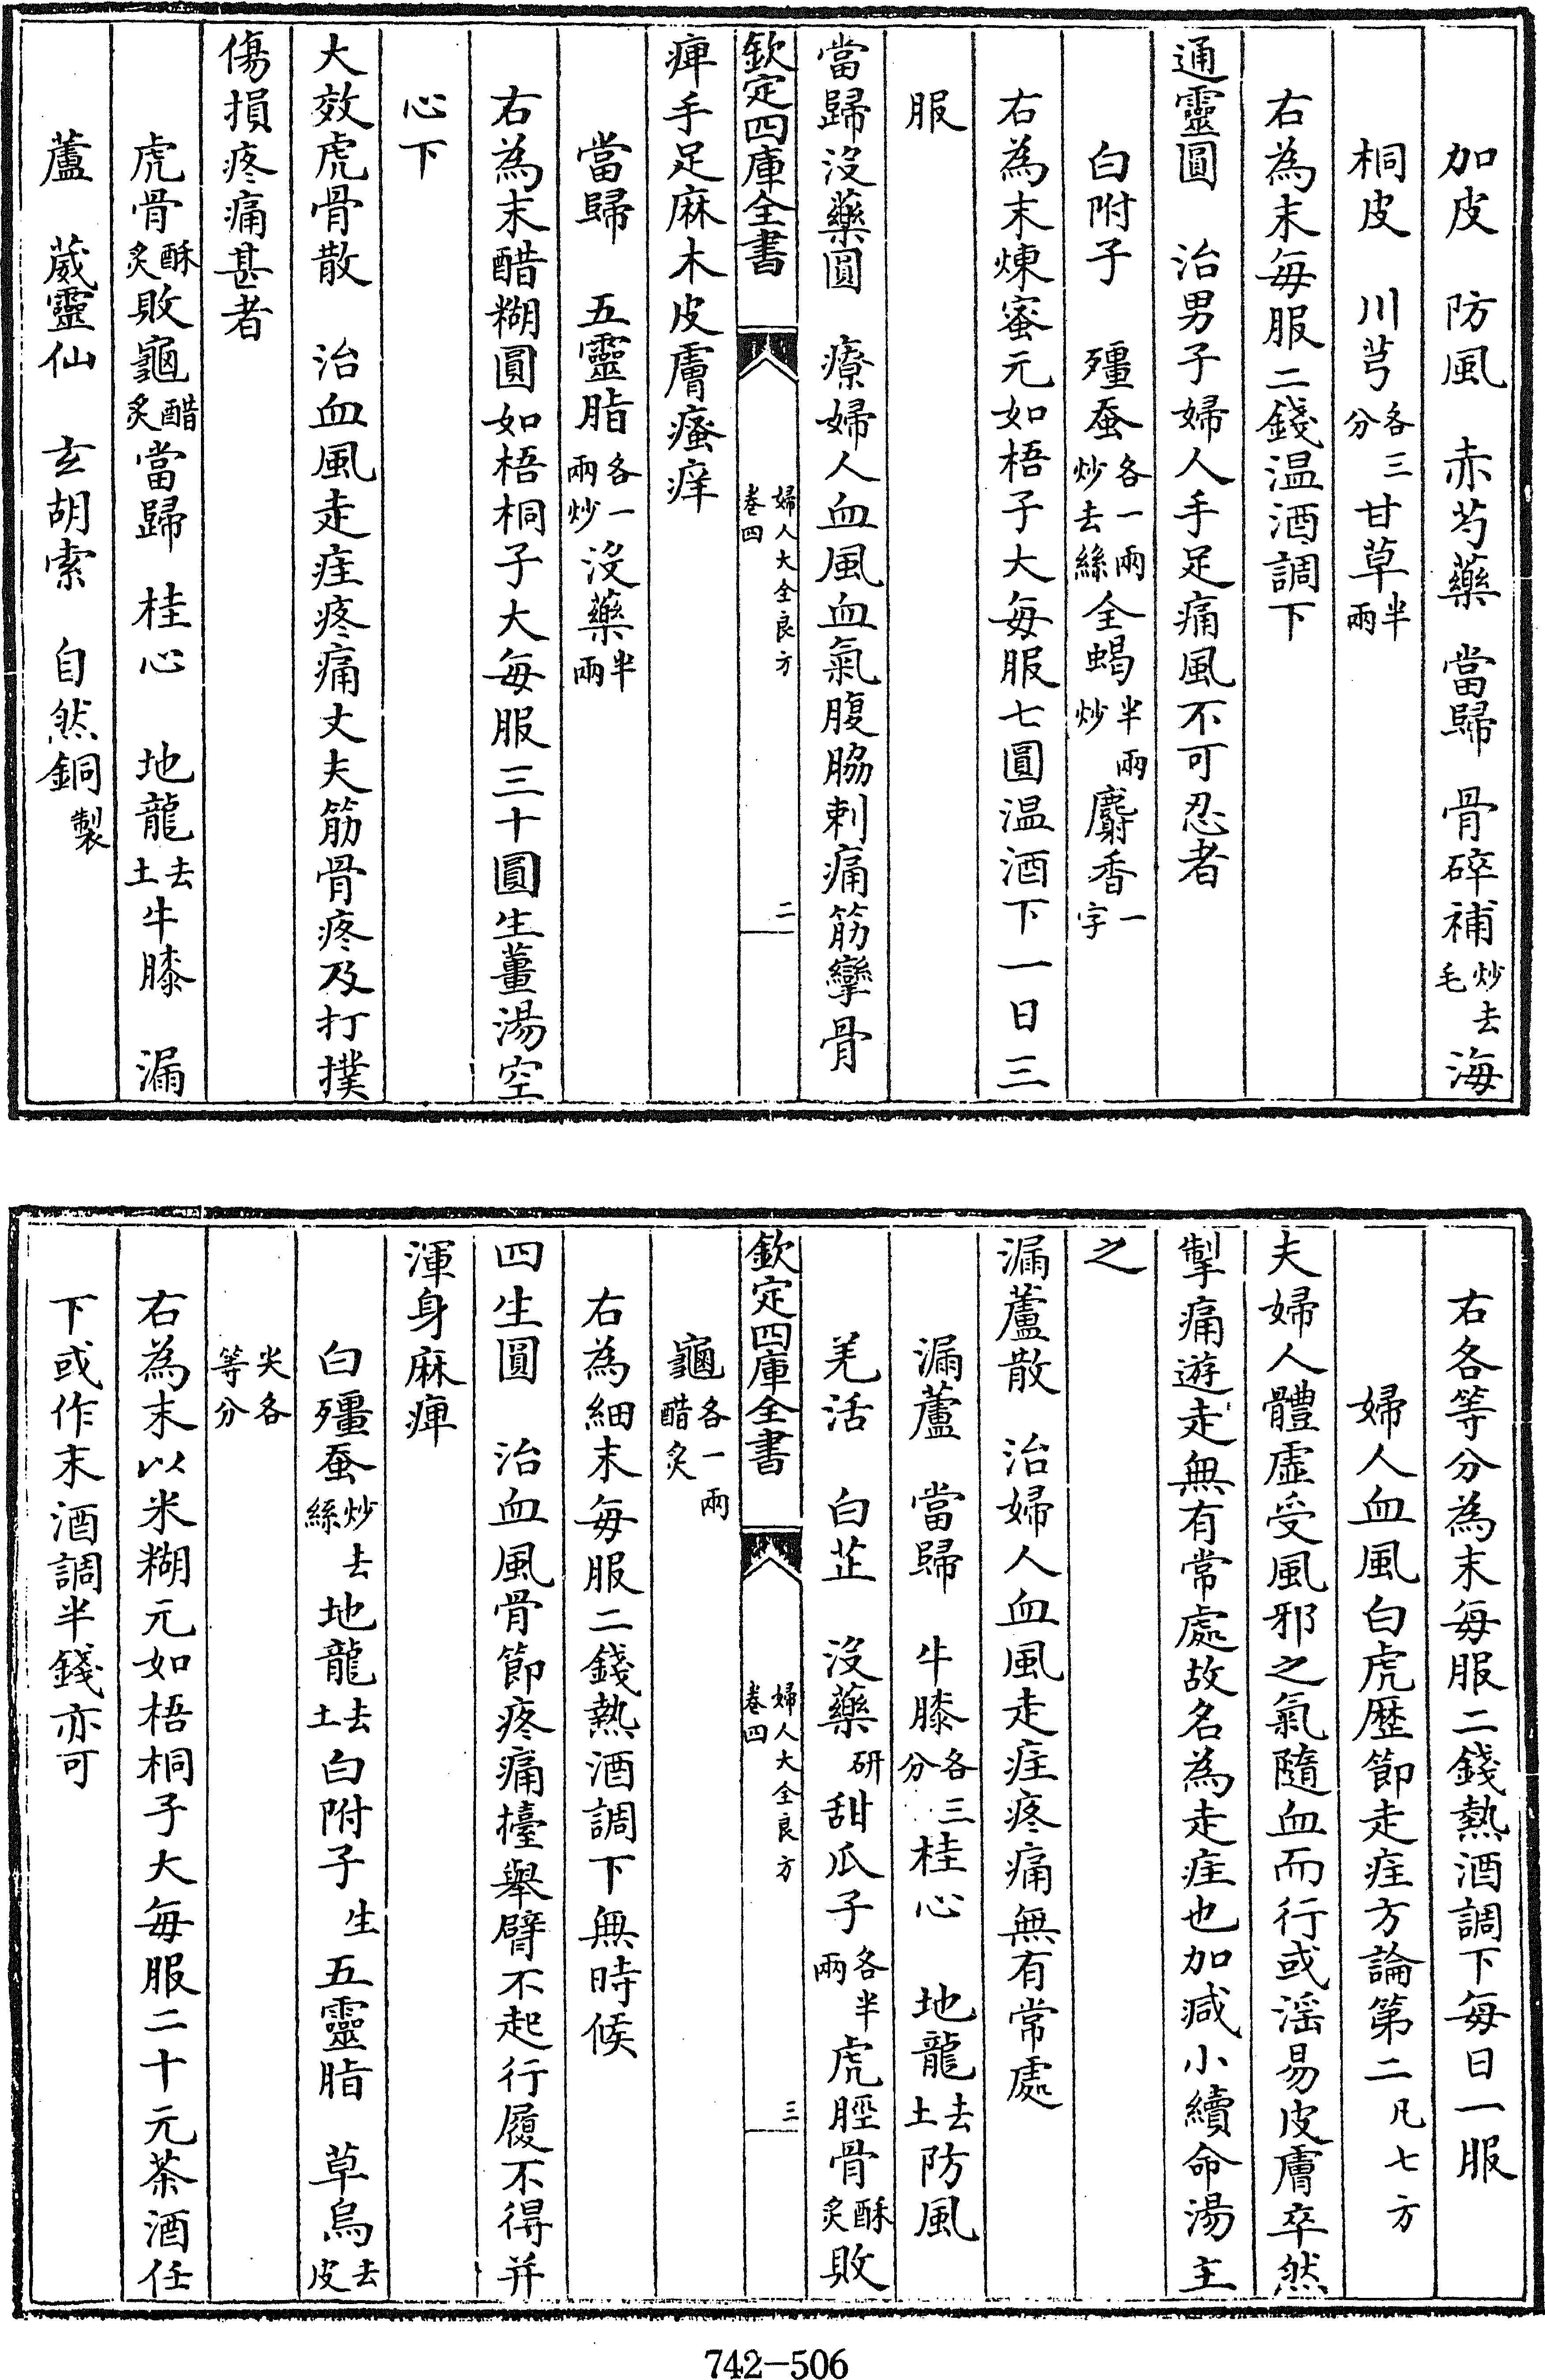 加皮　防風　赤芍藥　當歸　骨碎補炒去毛海
桐皮　川芎各三分甘草半兩
右為末每服二錢温酒調下
通靈圓　治男子婦人手足痛風不可忍者
白附子　殭蚕各一兩炒去絲全蝎半兩炒麝香一字
右為末煉蜜元如梧子大每服七圓温酒下一日三
服
當歸沒藥圓　療婦人血風血氣腹脇刺痛筋攣骨
欽定四庫全書　婦人大全良方卷四　二
痺手足麻木皮膚瘙痒
當歸　五靈脂各一兩炒沒藥半兩
右為末醋糊圓如梧桐子大每服三十圓生薑湯空
心下
大效虎骨散　治血風走疰疼痛丈夫筋骨疼及打撲
傷損疼痛甚者
虎骨酥炙敗龜醋炙當歸　桂心　地龍去土牛膝　漏
蘆　葳靈仙　玄胡索　自然銅製
右各等分為末每服二錢熱酒調下每日一服
婦人血風白虎歷節走疰方論第二凡七方
夫婦人體虛受風邪之氣隨血而行或滛易皮膚卒然
掣痛遊走無有常處故名為走疰也加减小續命湯主
之
漏蘆散　治婦人血風走疰疼痛無有常處
漏蘆　當歸　牛膝各三分桂心　地龍去土防風
羌活　白芷　沒藥研甜瓜子各半兩虎脛骨酥炙敗
欽定四庫全書　婦人大全良方卷四　三
龜各一兩醋炙
右為細末每服二錢熱酒調下無時候
四生圓　治血風骨節疼痛擡舉臂不起行履不得并
渾身麻痺
白殭蚕炒去絲地龍去土白附子生五靈脂　草烏去皮
尖各等分
右為末以米糊元如梧桐子大每服二十元茶酒任
下或作末酒調半錢亦可
742-506